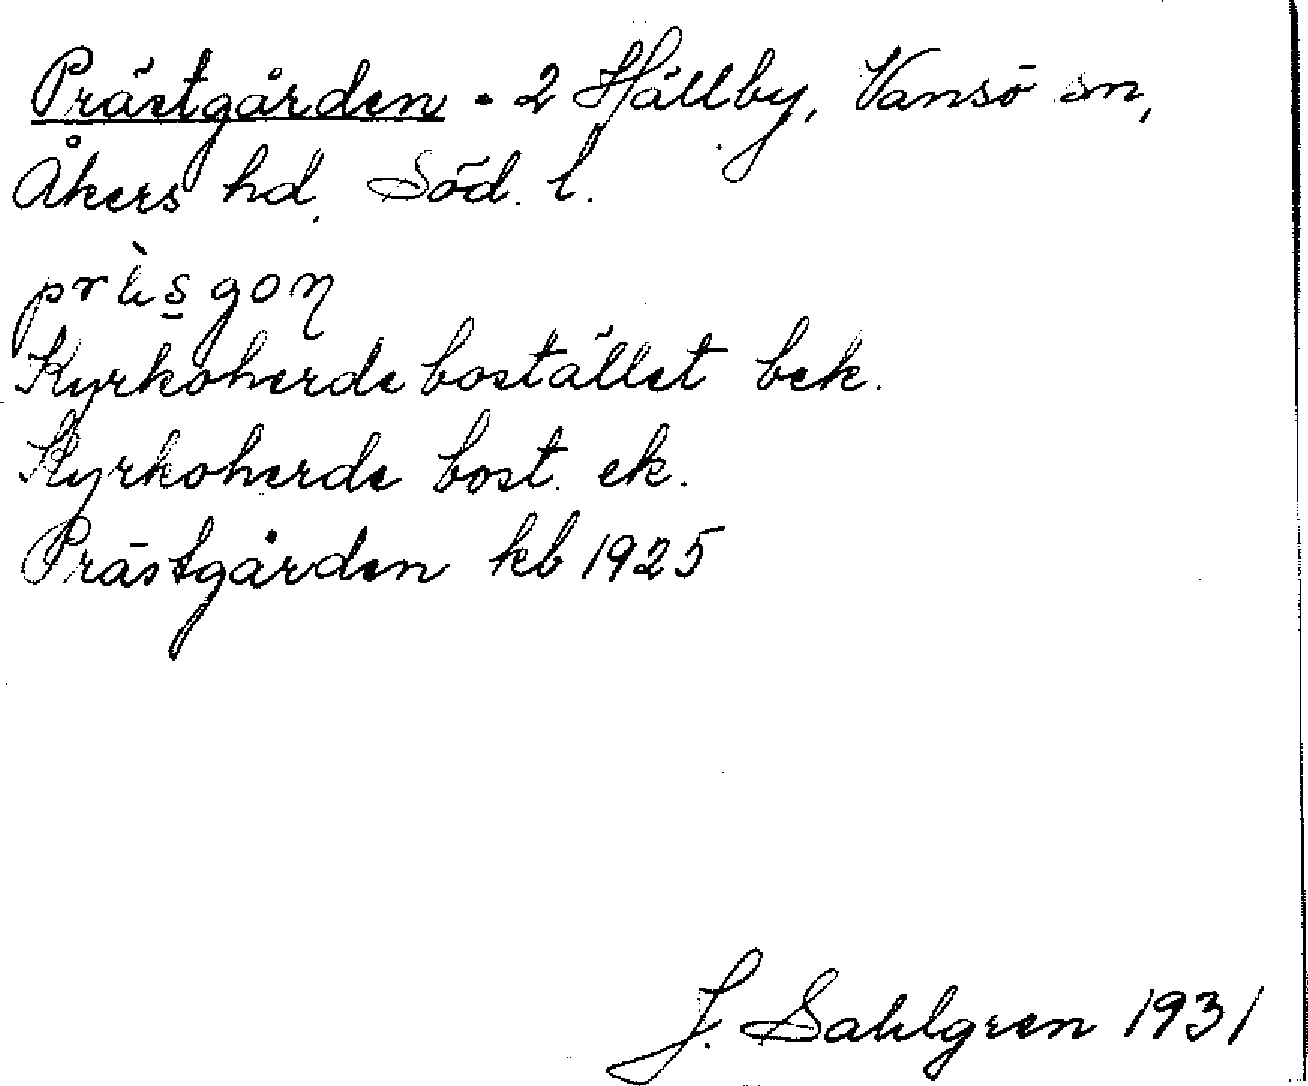 Prästgården - 2 Hällby, Vansö sn,
Åkers hd. Söd. l.
Kyrkoherdebostället bek.
Kyrkoherde bost. ek.
Prästgården kb 1925
J. Sahlgren 1931